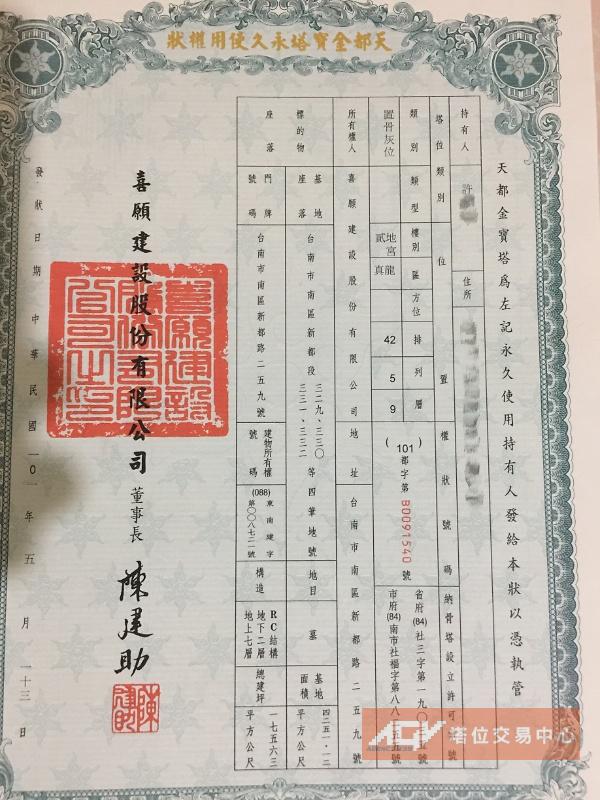 天都金寶塔永久使用權狀
天都金寶塔為左記永久使用持有人發給本狀以憑執管
持有人 許 住所
塔位類別 位置 權狀號碼 納骨塔設立許可號
類別 類型 樓別 區 方位 排 列 層
置骨灰位 地宮貳 龍真 42 5 9
(101)都字第B0091540號
省府(84)社三字第一九〇 號
市府(84)南市社福字第八八 號
所有權人 喜願建設股份有限公司 地址 台南市南區新都路二五九號
標的物座落
基地座落 台南市南區新都段三二九、三三〇、三三一、三三二等四筆地號 地目 墓 基地面積 四二五一·一二平方公尺
門牌號碼 台南市南區新都路二五九號 建物所有權號碼 (088)東南建字第〇〇八七二號 構造 RC結構地下二層地上七層 總建坪 一七五六三平方公尺
喜願建設股份有限公司 董事長 陳建助
喜願建設股份有限公司之印
發狀日期 中華民國一〇一年五月二十三日
AGV 塔位交易中心